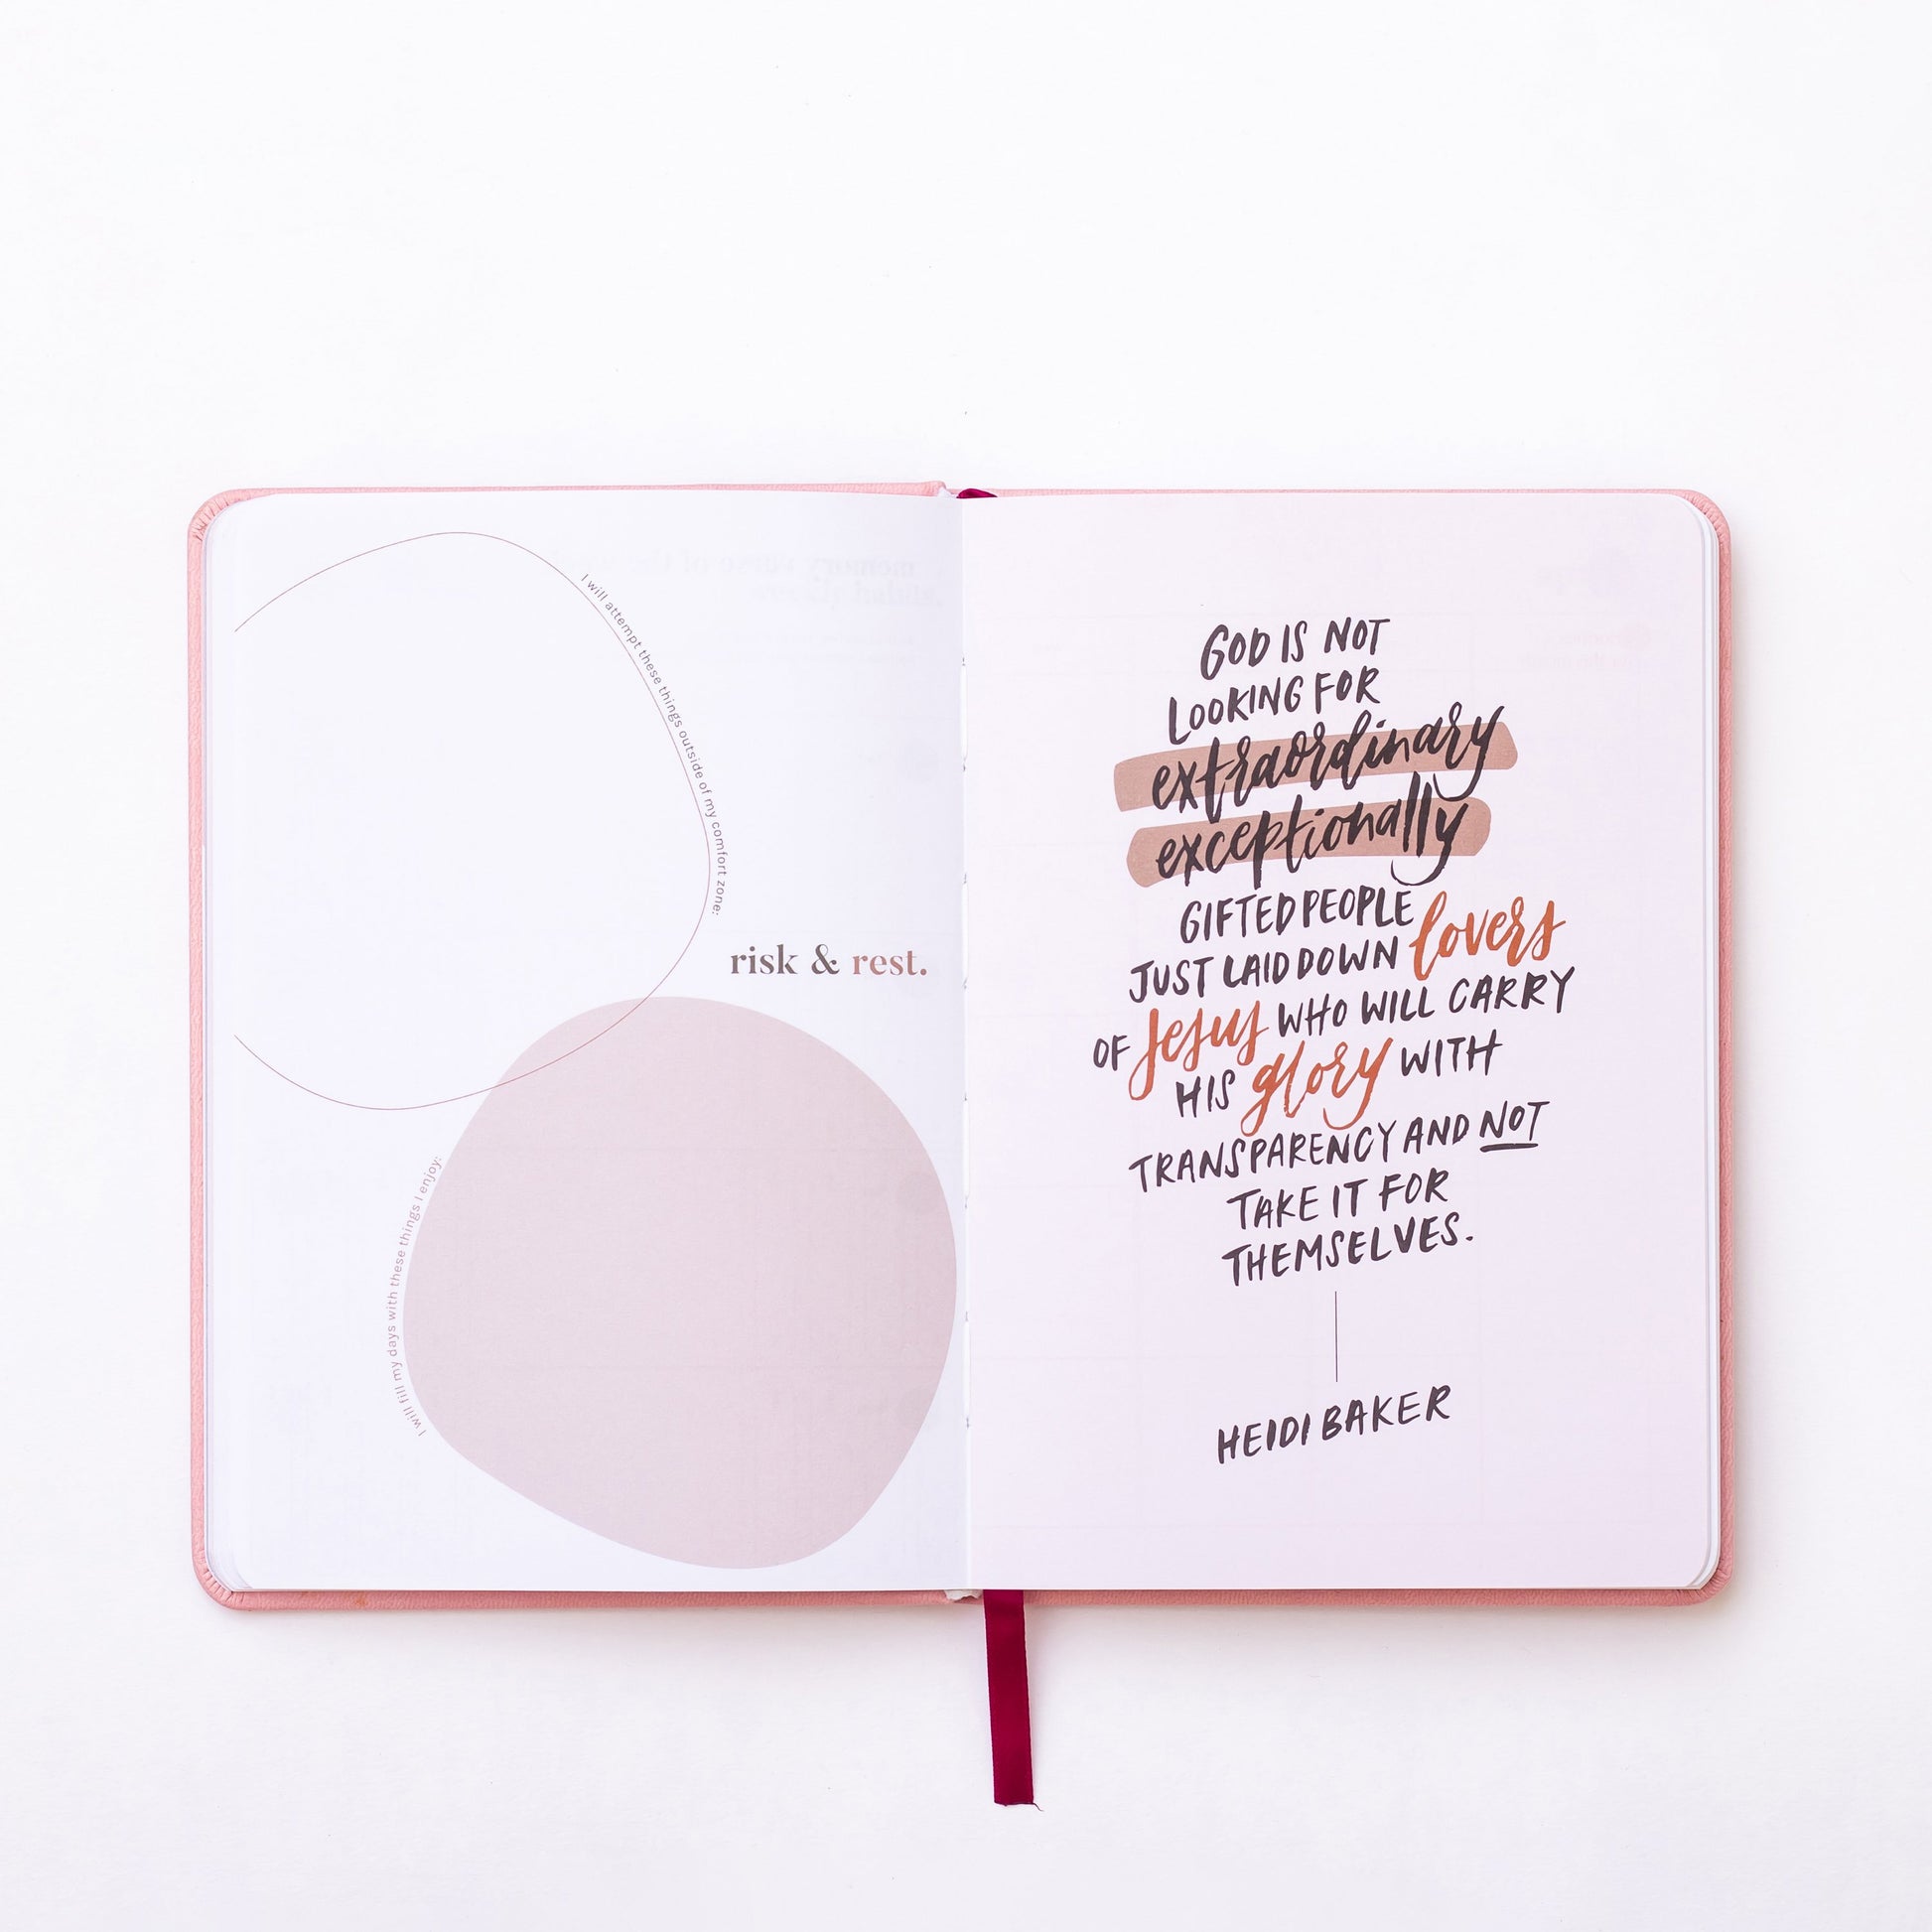 I will attempt these things outside of my comfort zone:
risk & rest.
I will fill my days with these things I enjoy:
GOD IS NOT
LOOKING FOR
extraordinary
exceptionally
GIFTED PEOPLE
JUST LAID DOWN lovers
OF Jesus WHO WILL CARRY
HIS glory WITH
TRANSPARENCY AND NOT
TAKE IT FOR
THEMSELVES.
HEIDI BAKER